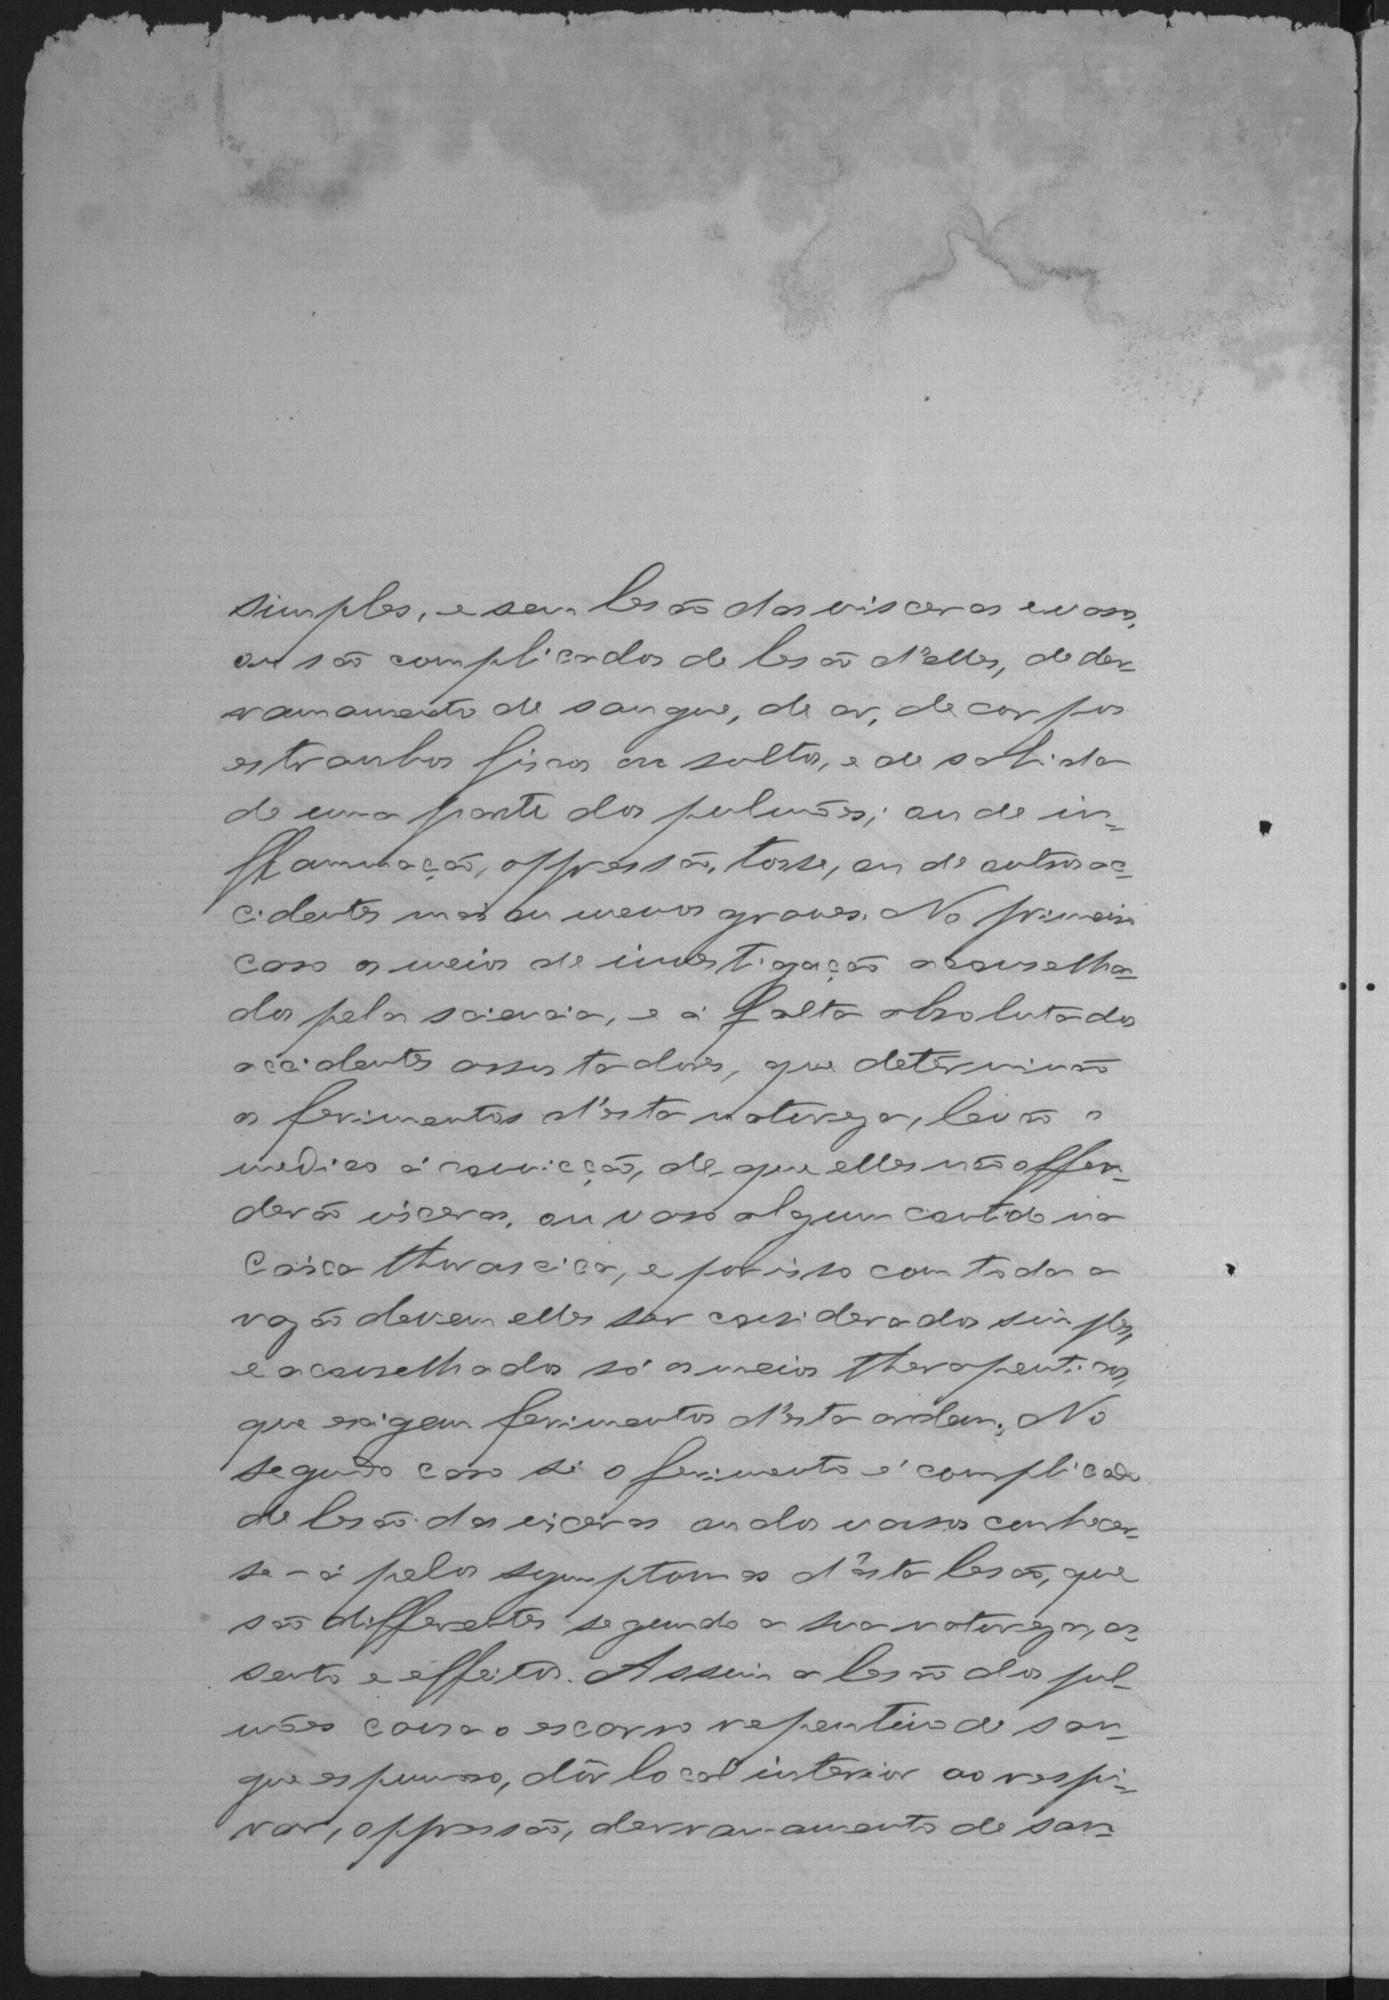 simples, e sem lesão das visceras e vasos,
ou são complicados de lesão d'elles, de der-
ramamento de sangue, de ar, de corpos
estranhos fixos ou soltos, e de sahida
de uma parte dos pulmões; ou de in-
flammação, oppressão, tosse, ou de outros ac-
cidentes mais ou menos graves. No primeiro
caso os meios de investigação aconselha-
dos pela sciencia, e a falta absoluta dos
accidentes assustadores, que determinão
os ferimentos d'esta natureza, levão o
medico á convicção, de que elles não offen-
derão visceras, ou vaso algum contido na
caixa thorascica, e por isso com toda a
razão devem elles ser considerados simples,
e aconselhados só os meios therapeuticos,
que exigem ferimentos d'esta ordem. No
segundo caso si o ferimento é complicado
de lesão das viceras ou dos vasos conhecer-
se-á pelos symptomas d'esta lesão, que
são differentes segundo a sua natureza, as-
sento e effeitos. Assim a lesão dos pul-
mões causa o escarro repentino de san-
gue espumoso, dôr local interior ao respi-
rar, oppressão, derramamento de san-